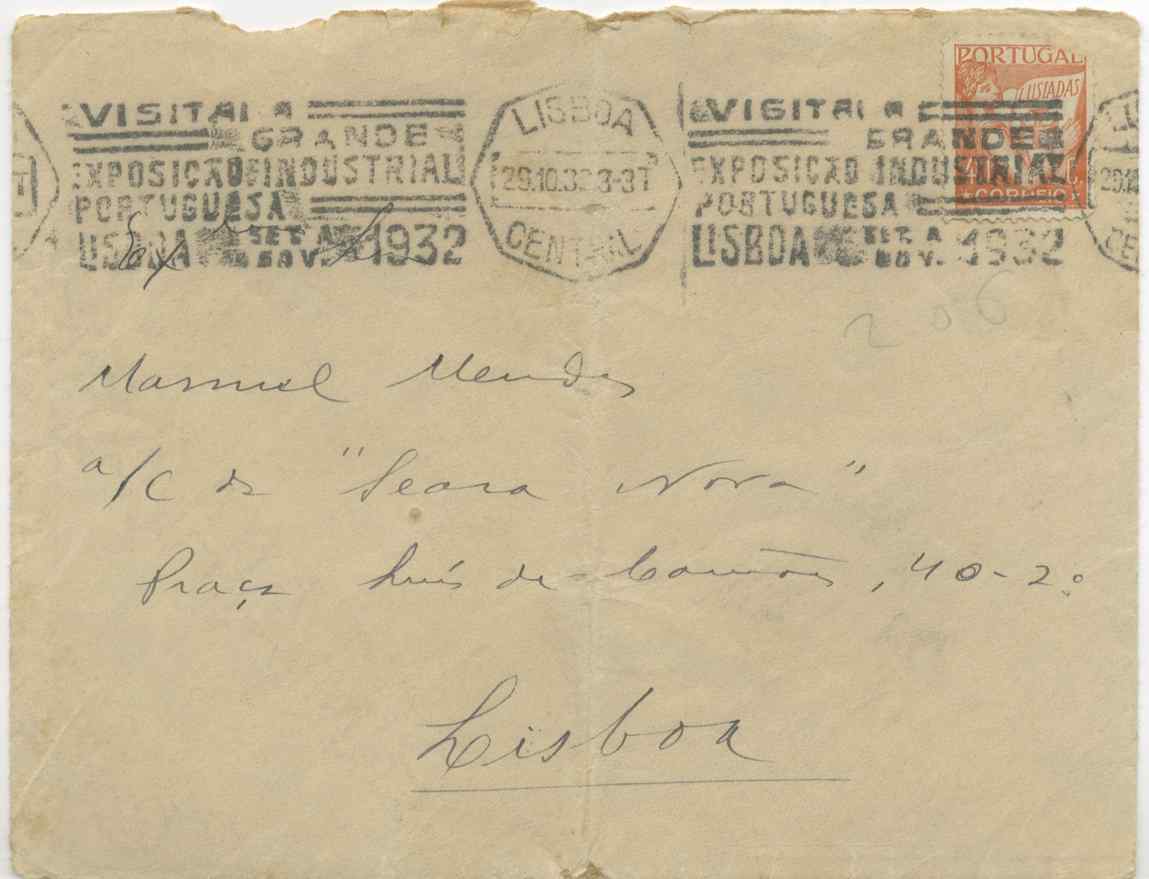 PORTUGAL
LUSIADAS
40 C.
CORREIO
VISITAI A
GRANDE
EXPOSIÇÃO INDUSTRIAL
PORTUGUESA
LISBOA SET. A NOV. 1932
LISBOA
29.10.32 3-3T
CENTRAL
VISITAI A
GRANDE
EXPOSIÇÃO INDUSTRIAL
PORTUGUESA
LISBOA SET. A NOV. 1932
206
Manuel Mendes
a/c de "Seara Nova"
Praça Luís de Camões, 40-2º
Lisboa